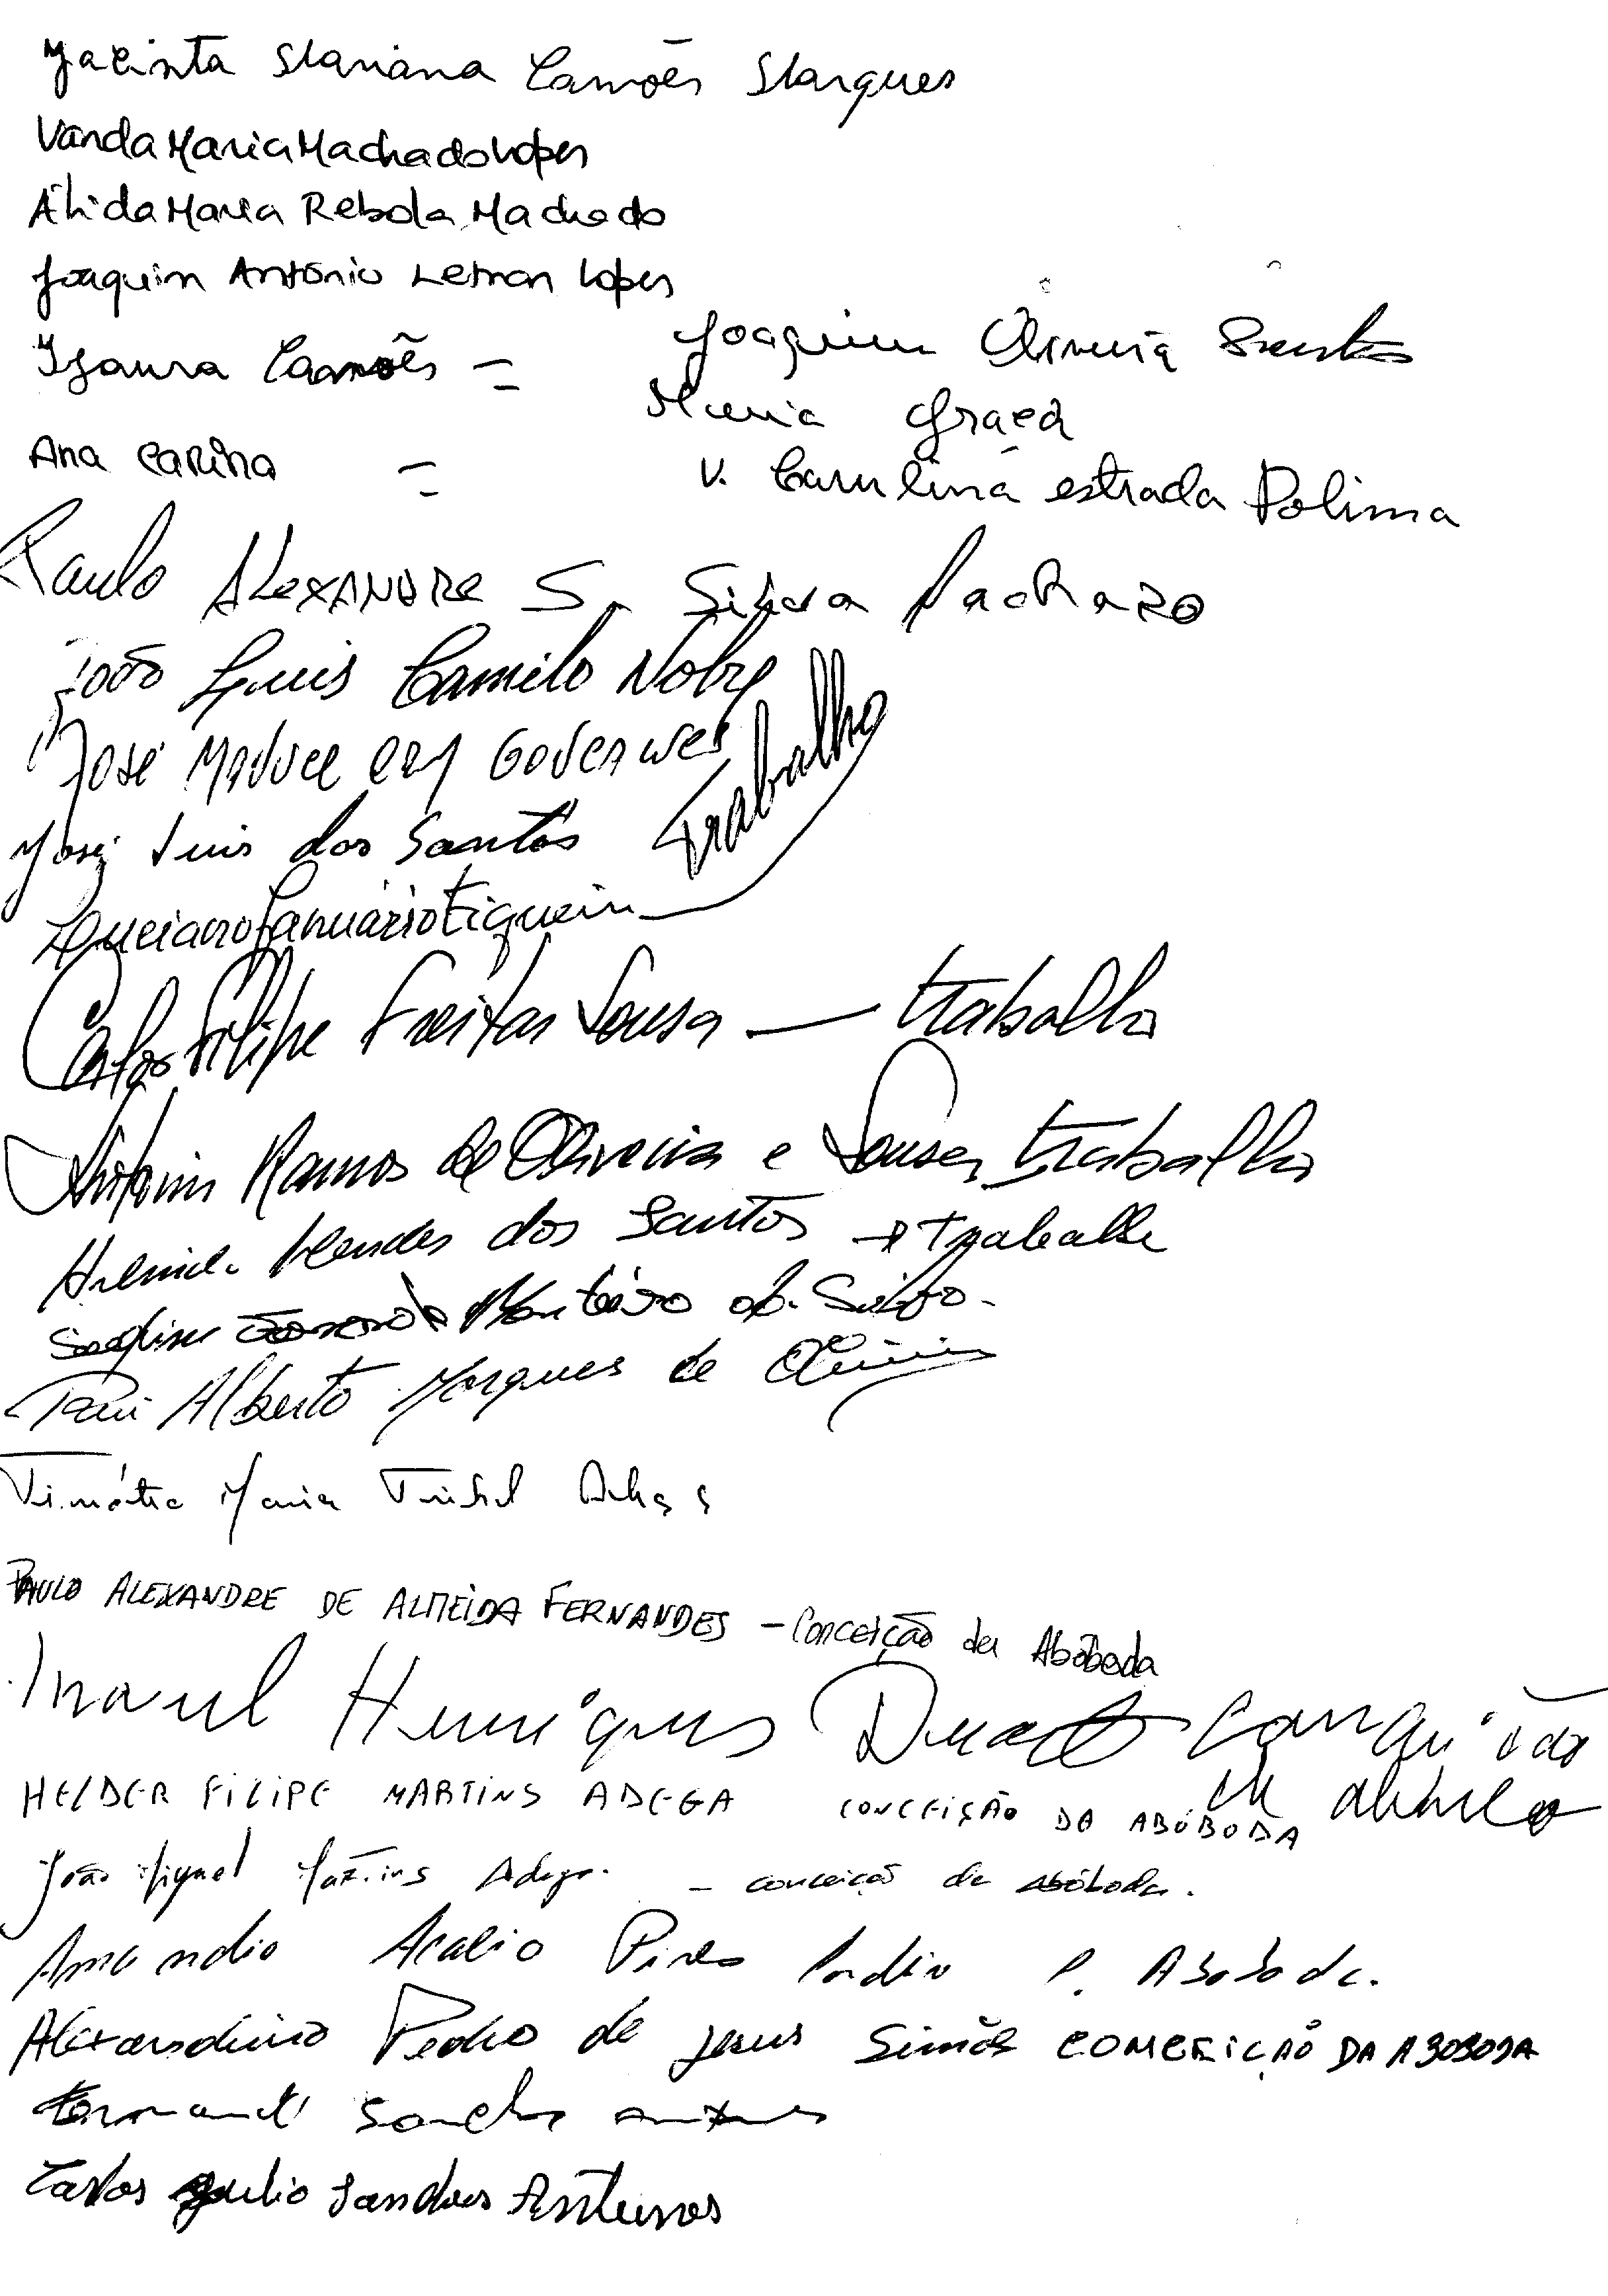 Jacinta Mariana Camões Marques
Vanda Maria Machado Lopes
Élida Maria Rebola Machado
Joaquim António Lemon Lopes
Izaura Camões =
Joaquim Oliveira Santos
Maria Graça
Ana Carina =
V. Carolina estrada Polima
Paulo ALEXANDRE S. Silva Machado
João Luis Camilo Nobre
José Manuel
José Luis dos Santos
Luciano Januário Figueira trabalho
Carlos Filipe Freitas Sousa — trabalho
António Ramos de Oliveira e Sousa trabalho
Mendes dos Santos → trabalho
Monteiro da Silva
Rui Alberto Marques de Oliveira
Maria
PAULO ALEXANDRE DE ALMEIDA FERNANDES - Conceição da Abóboda
Henriques Duarte
HELDER FILIPE MARTINS ADEGA CONCEIÇÃO DA ABÓBODA
João Miguel Martins Adega. - conceição da abóboda.
Amandio Acacio Pires C. Aboboda.
Alexandrino Pedro de Jesus Simões CONCEIÇÃO DA ABOBODA
Sanches
Carlos Julio Sanches Antunes